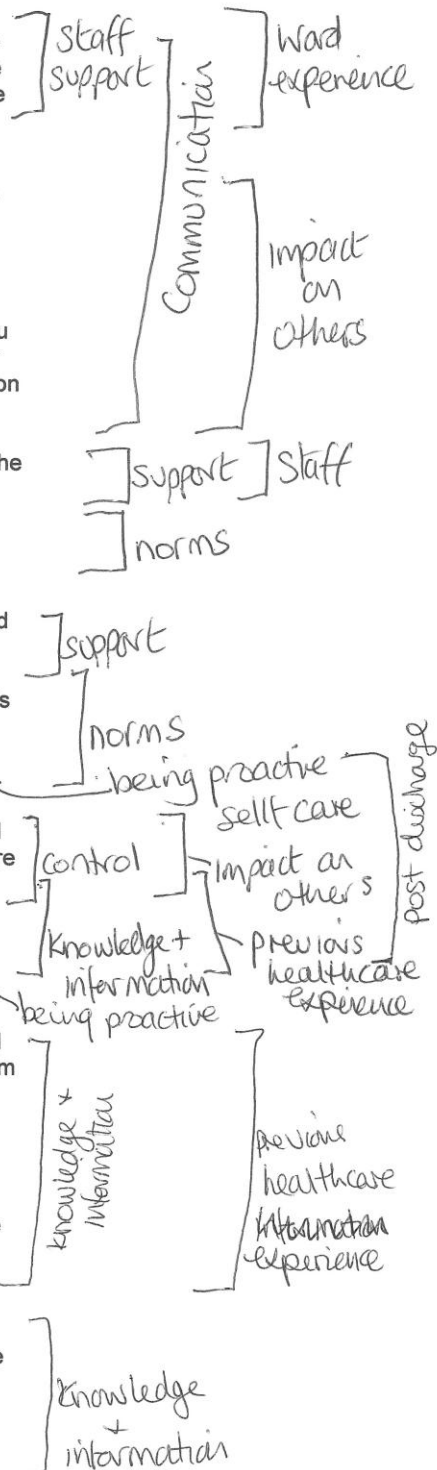 staff
support
Communication
Ward
experience
impact
on
others
u
on
he
support
Staff
norms
d
support
s
norms
being proactive
sellf care
post discharge
re
control
impact on
others
knowledge +
information
previous
healthcare
experience
being proactive
m
knowledge +
information
previous
healthcare
information
experience
e
knowledge
+
information